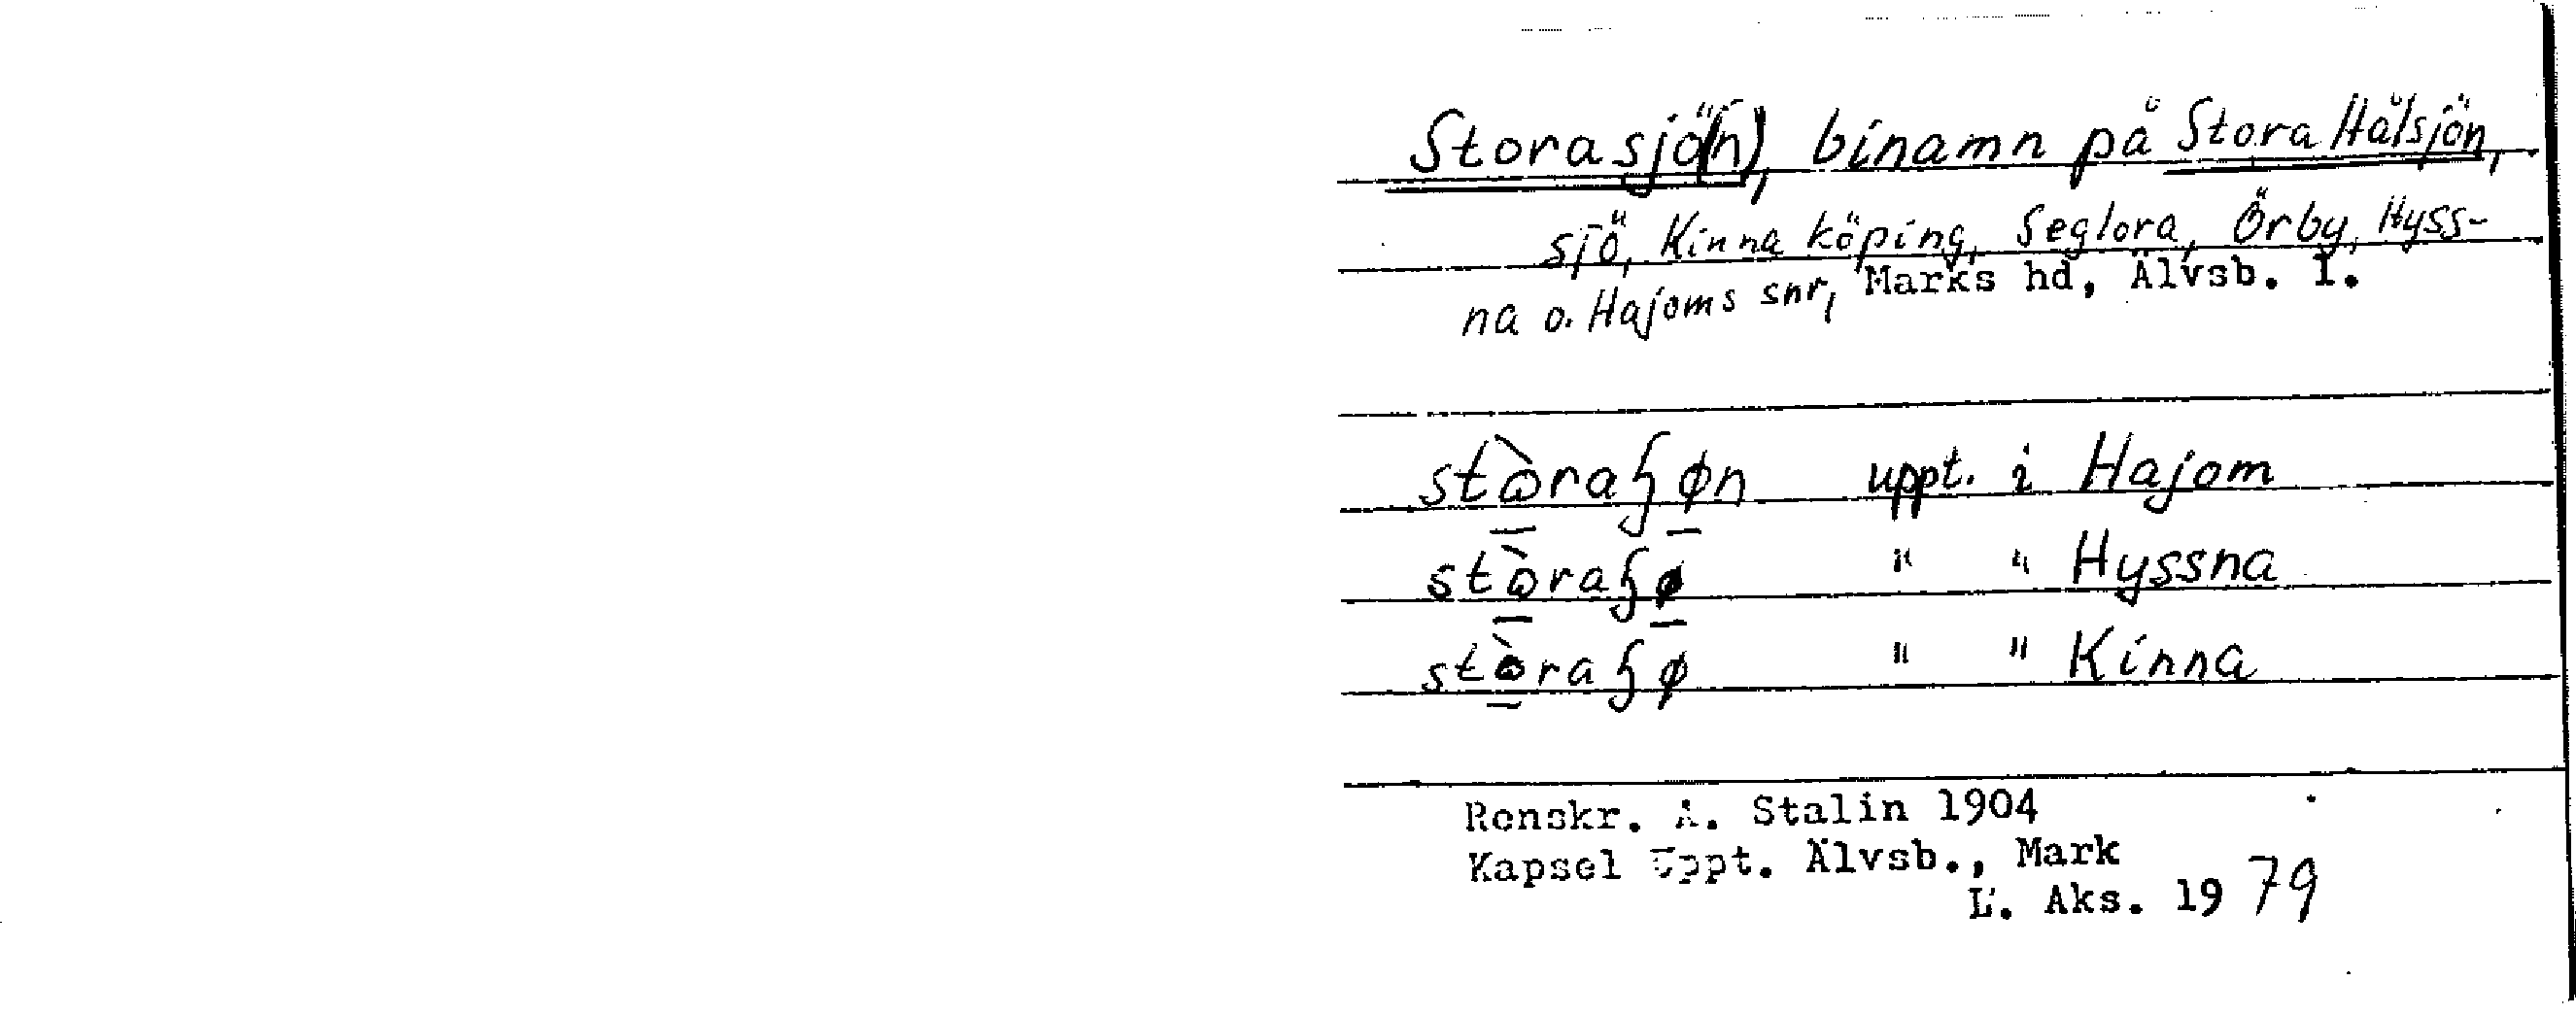 Storasjö(n), binamn på Stora Hålsjön,
sjö, Kinna köping, Seglora, Örby, Hyss-
na o. Hajoms snr, Marks hd, Älvsb. l.
stòraʃøn uppt. i Hajom
stòraʃø " " Hyssna
stòraʃø " " Kinna
Renskr. A. Stalin 1904
Kapsel Uppt. Älvsb., Mark
L. Aks. 1979